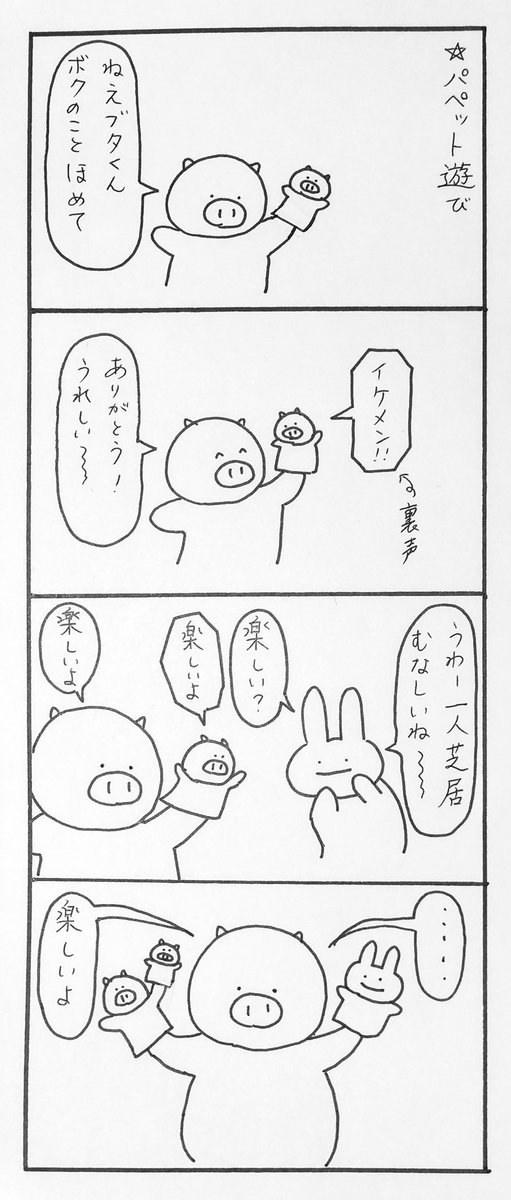 ☆パペット遊び
ねえブタくん
ボクのことほめて
イケメン!!
↖裏声
ありがとう!
うれしい〜〜
うわー一人芝居
むなしいね〜〜
楽しい?
楽しいよ
楽しいよ
・・・・
楽しいよ